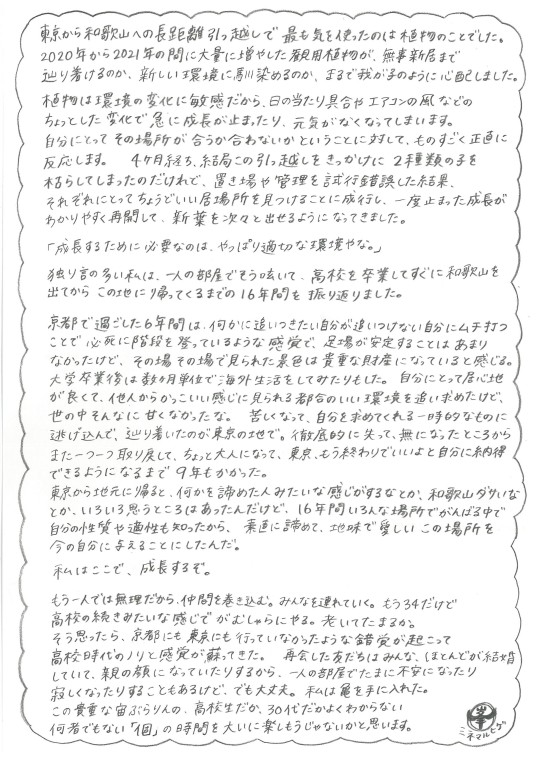 東京から和歌山への長距離引っ越しで 最も気を使ったのは植物のことでした。
2020年から2021年の間に大量に増やした観用植物が、無事新居まで
辿り着けるのか、新しい環境に馴染めるのか、まるで我が子のように心配しました。
植物は環境の変化に敏感だから、日の当たり具合やエアコンの風などの
ちょっとした変化で急に成長が止まったり、元気がなくなってしまいます。
自分にとってその場所が合うか合わないかということに対して、ものすごく正直に
反応します。 4ヶ月経ち、結局この引っ越しをきっかけに2種類の子を
枯らしてしまったのだけれど、置き場や管理を試行錯誤した結果、
それぞれにとってちょうどいい居場所を見つけることに成行し、一度止まった成長が
わかりやすく再開して、新葉を次々と出せるようになってきました。
「成長するために必要なのは、やっぱり適切な環境やな。」
独り言の多い私は、一人の部屋でそう呟いて、高校を卒業してすぐに和歌山を
出てから この地に帰ってくるまでの16年間を振り返りました。
京都で過ごした6年間は、何かに追いつきたい自分が追いつけない自分にムチ打つ
ことで 必死に階段を登っているような感覚で、足場が安定することはあまり
なかったけど、その場その場で見られた景色は貴重な財産になっていると感じる。
大学卒業後は数ヶ月単位で海外生活をしてみたりもした。 自分にとって居心地
が良くて、他人からかっこいい感じに見られる都合のいい環境を追い求めたけど、
世の中そんなに甘くなかったな。 苦しくなって、自分を求めてくれる一時的なものに
逃げ込んで、辿り着いたのが東京の地で。徹底的に失って、無になったところから
また一つ一つ取り戻して、ちょっと大人になって、東京、もう終わりでいいよと自分に納得
できるようになるまで 9年もかかった。
東京から地元に帰ると、何かを諦めた人みたいな感じがするなとか、和歌山ダサいな
とか、いろいろ思うところはあったんだけど、16年間いろんな場所でがんばる中で
自分の性質や適性も知ったから、 素直に諦めて、地味で愛しいこの場所を
今の自分に与えることにしたんだ。
私はここで、成長するぞ。
もう一人では無理だから、仲間を巻き込む。みんなを連れていく。もう34だけど
高校の続きみたいな感じで がむしゃらにやる。老いてたまるか。
そう思ったら、京都にも東京にも行っていなかったような錯覚が起こって
高校時代のノリと感覚が蘇ってきた。 再会した友だちはみんな、ほとんどが結婚
していて、親の顔になっていたりするから、一人の部屋でたまに不安になったり
寂しくなったりすることもあるけど、でも大丈夫。私は亀を手に入れた。
この貴重な宙ぶらりんの、高校生だか、30代だかよくわからない
何者でもない「個」の時間を大いに楽しもうじゃないかと思います。
ミネマルヒゲ